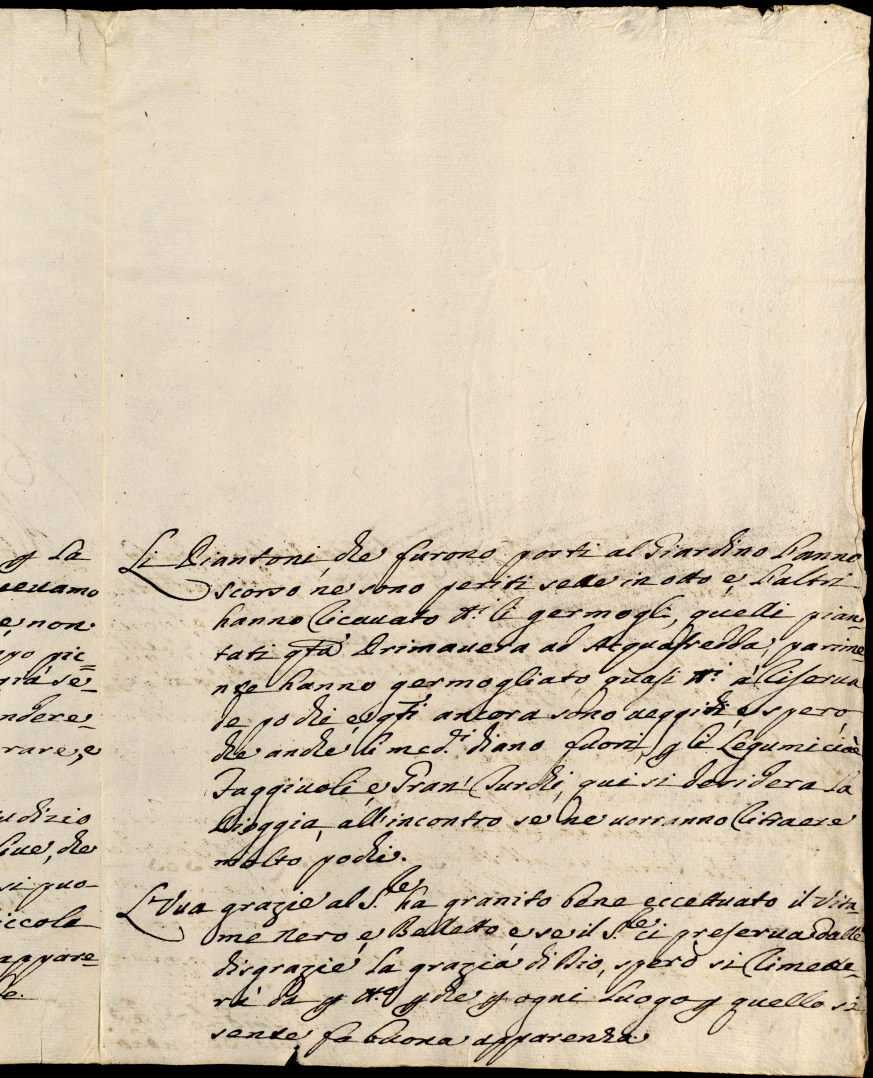 la
uevamo
e non
po pic=
già se-
ndere-
rare, e
udizio
liue, che
si puo-
iccola
appare-
le.
Li Piantoni, che furono posti al Giardino l'anno
scorso ne sono periti sette in otto e l'altri
hanno ricauato tti li germogli, quelli pian-
tati qsta Primauera ad Acquafredda, parime-
nte hanno germogliato quasi tti à riserua
de pochi, e qsti ancora sono ueggidi, e spero
che anche li medti diano fuori, p li Legumi cioè
Faggiuoli, e Gran Turchi, qui si desidera la
Pioggia, all'incontro se ne uorranno ritraere
molto pochi.
L'Vua grazie al Sre ha granito bene eccettuato il Vita-
me nero, e Balletto, e se il Sre ci preserua dalle
disgrazie, la grazia di Dio, sperò si rimette-
rà da p tto pche p ogni luogo p quello si
sente fa buona apparenza.